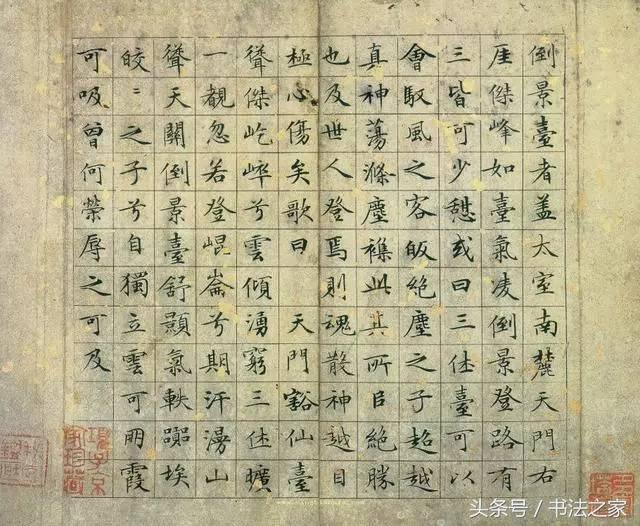 倒景臺者盖太室南麓天門右
厓傑峰如臺氣凌倒景登路有
三皆可少憇或曰三休臺可以
會馭風之客皈絶塵之子超越
真神蕩滌塵襍此其所㠯絶勝
也及世人登焉則魂散神越目
極心傷矣歌曰　天門豁仙臺
聳傑屹崒兮雲傾湧窮三休曠
一覩忽若登崐崙兮期汗漫山
聳天關倒景臺舒顥氣軼埃
皎〻之子兮自獨立雲可朋霞
可吸曾何榮辱之可及
头条号 / 书法之家